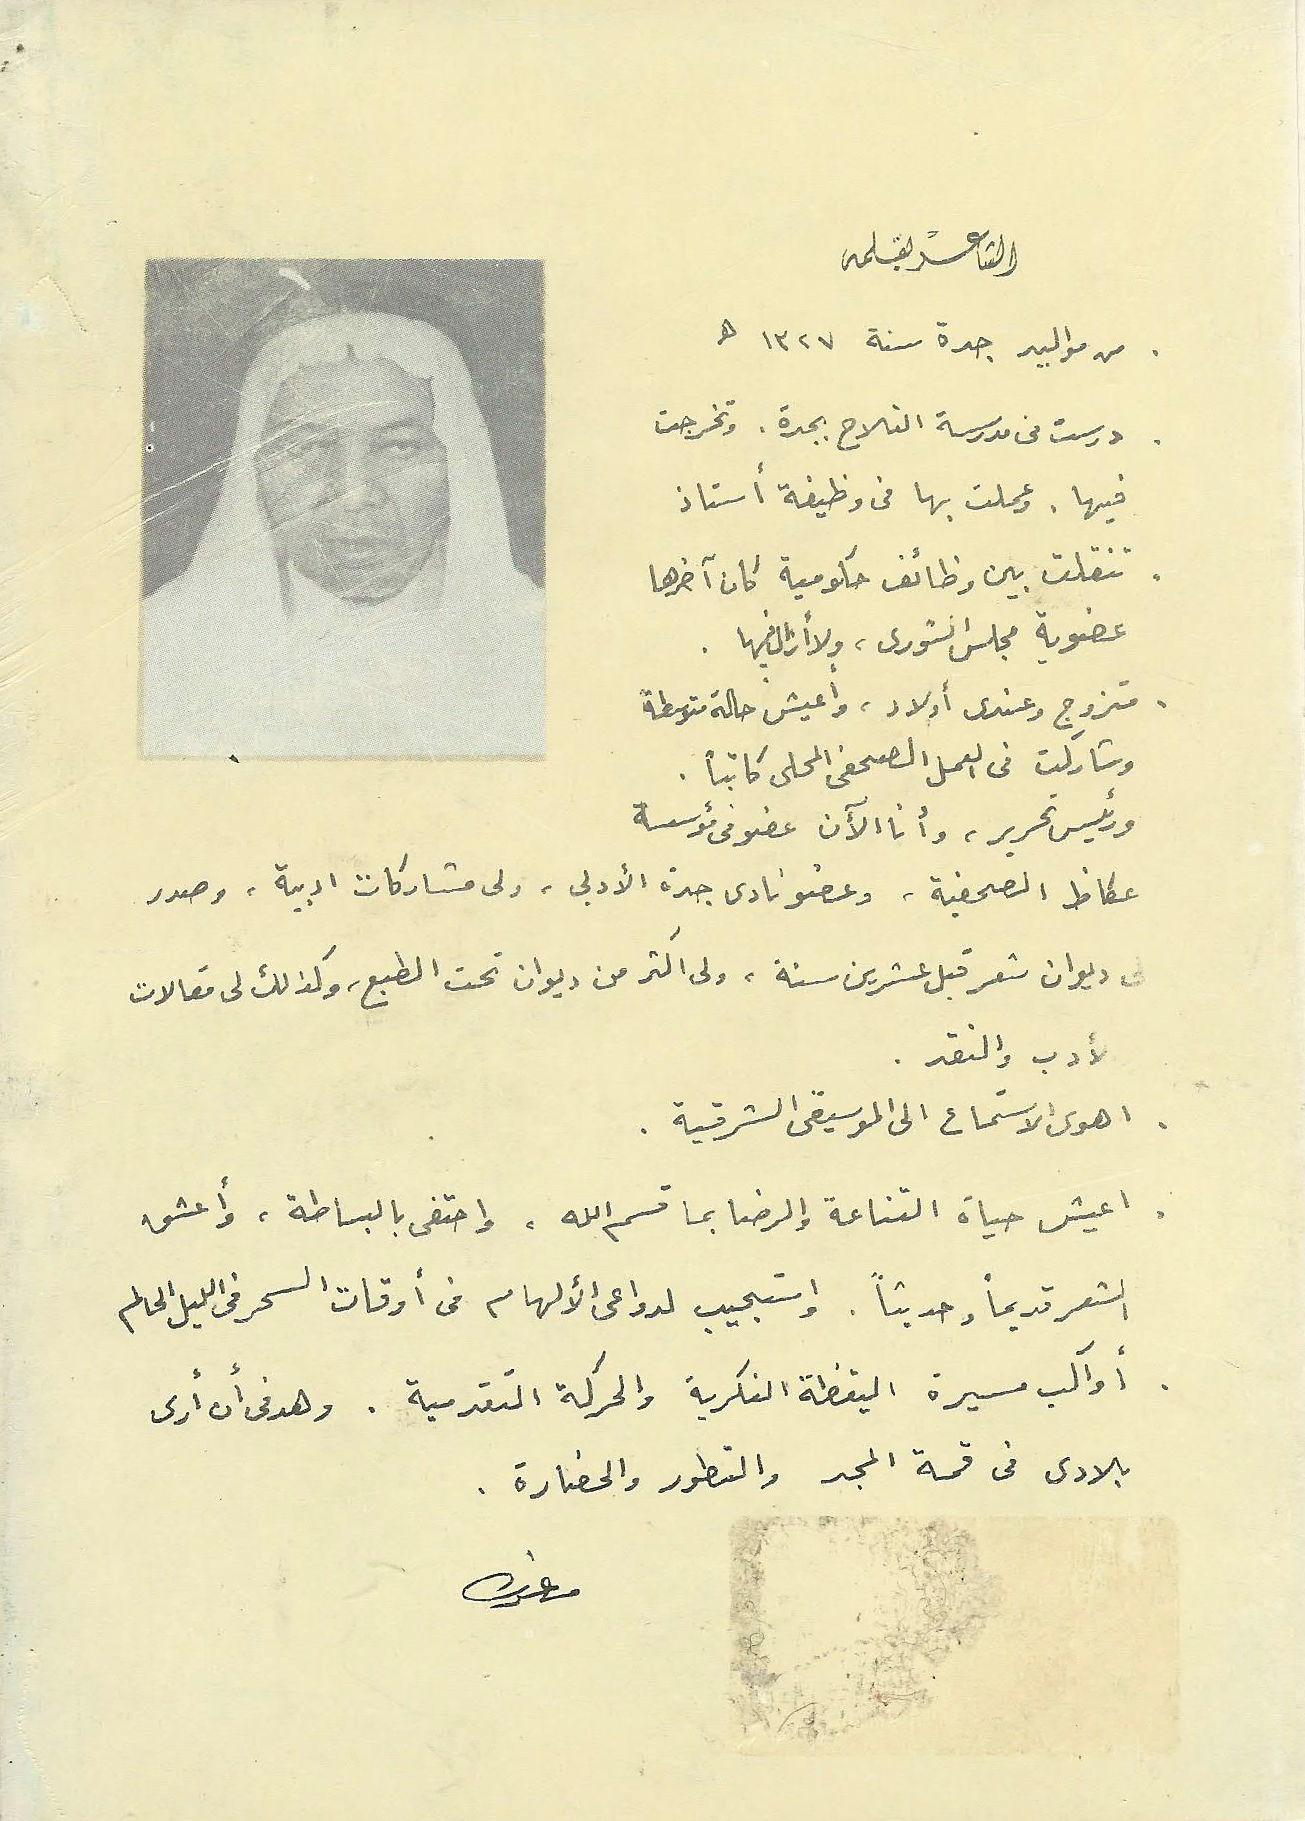 الشاعر بقلمه
. من مواليد جدة سنة ١٣٢٧ هـ
. درست فى مدرسة الفلاح بجدة . وتخرجت
فيها . وعملت بها فى وظيفة أستاذ
. تنقلت بين وظائف حكومية كان آخرها
عضوية مجلس الشورى ، ولا أزال فيها .
. متزوج وعندى أولاد ، وأعيش حالة متوسطة
وشاركت فى العمل الصحفى المحلى كاتباً .
ورئيس تحرير ، وأنا الآن عضو فى مؤسسة
عكاظ الصحفية ، وعضو نادى جدة الأدبى ، ولى مشاركات ادبية ، وصدر
لى ديوان شعر قبل عشرين سنة ، ولى اكثر من ديوان تحت الطبع ، وكذلك لى مقالات
لأدب والنقد .
. اهوى الاستماع الى الموسيقى الشرقية .
. اعيش حياة القناعة والرضا بما قسم الله ، واحتفى بالبساطة ، وأعشق
الشعر قديماً وحديثاً . واستجيب لدواعى الألهام فى أوقات السحر فى الليل الحالم
. أواكب مسيرة اليقظة الفكرية والحركة التقدمية . وهدفى أن أرى
بلادى فى قمة المجد والتطور والحضارة .